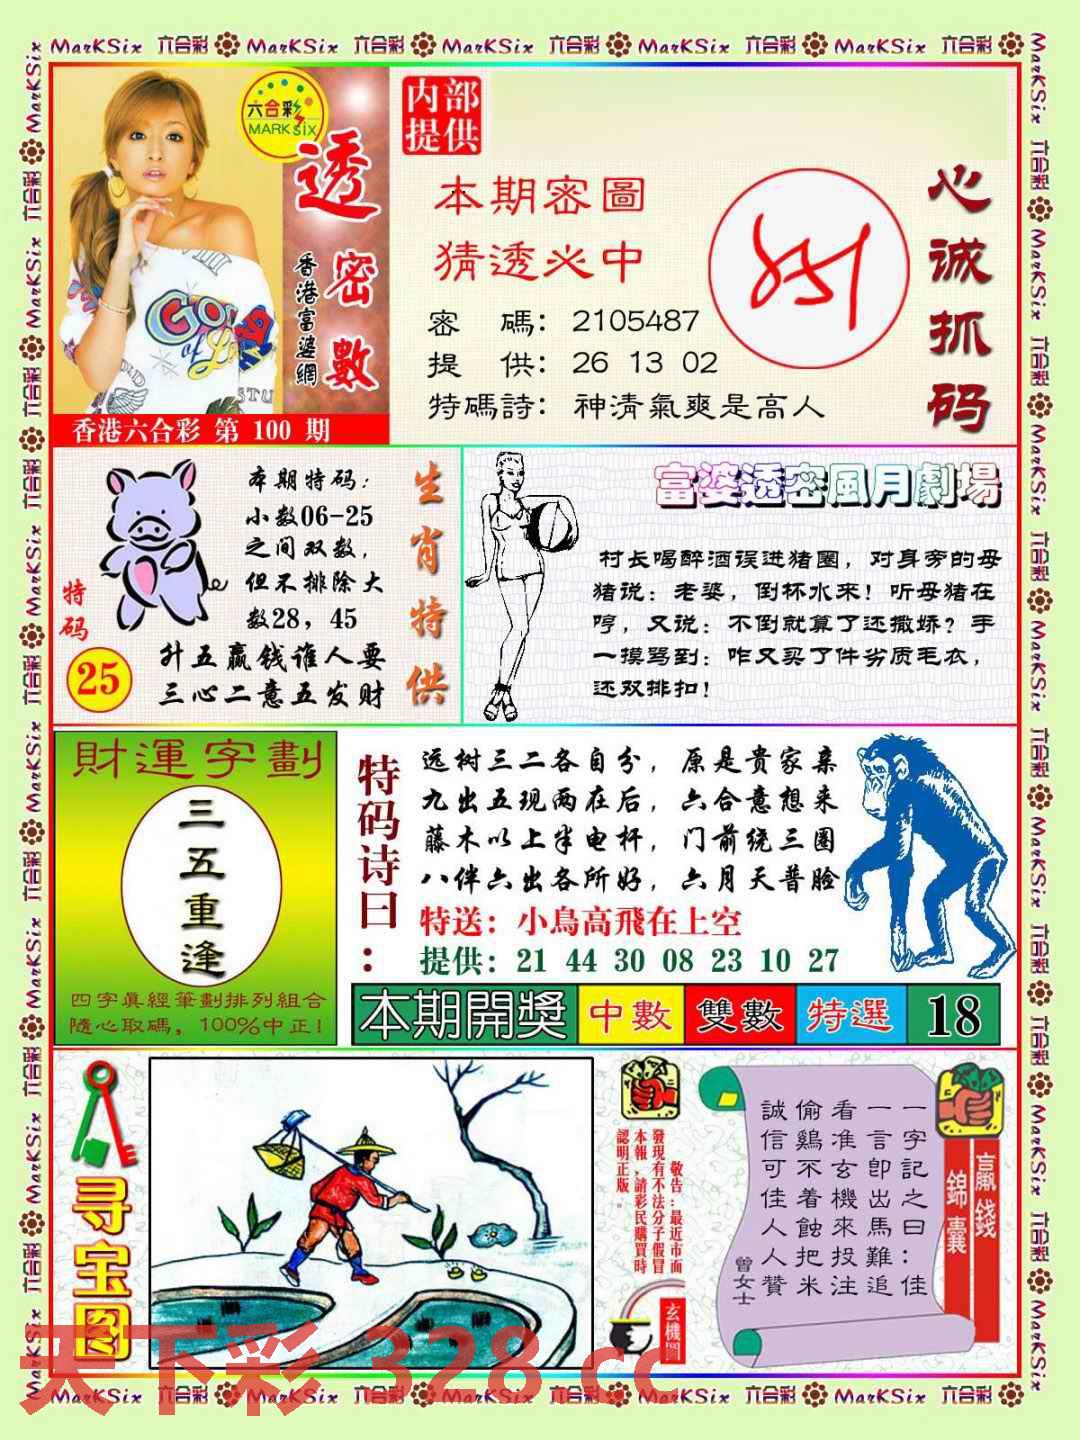 MarKSix 六合彩 MarKSix 六合彩 MarKSix 六合彩 MarKSix 六合彩 MarKSix 六合彩
六合彩
MARK SIX
透密數
香港富婆網
香港六合彩 第 100 期
内部
提供
本期密圖
猜透必中
密 碼: 2105487
提 供: 26 13 02
特碼詩: 神清氣爽是高人
心诚抓码
本期特码:
小数06-25
之间双数,
但不排除大
数28, 45
特码
25
升五赢钱谁人要
三心二意五发财
生肖特供
富婆透密風月劇場
村长喝醉酒误进猪圈, 对身旁的母
猪说: 老婆, 倒杯水来! 听母猪在
哼, 又说: 不倒就算了还撒娇? 手
一摸骂到: 咋又买了件劣质毛衣,
还双排扣!
財運字劃
三五重逢
四字眞經筆劃排列組合
隨心取碼, 100%中正!
特码诗曰:
远树三二各自分, 原是贵家亲
九出五现两在后, 六合意想来
藤木以上半电杆, 门前绕三圈
八伴六出各所好, 六月天普脸
特送: 小鳥高飛在上空
提供: 21 44 30 08 23 10 27
本期開獎 中數 雙數 特選 18
寻宝图
敬告:最近市面
發現有不法分子假冒
本報,請彩民購買時
認明正版。
玄機
贏錢
錦囊
一字記之曰:佳
一言卽出馬難追
看准玄機來投注
偷鷄不着蝕把米
誠信可佳人人贊
曾女士
天下彩 328.cc
MarKSix 六合彩 MarKSix 六合彩 MarKSix 六合彩 MarKSix 六合彩 MarKSix 六合彩